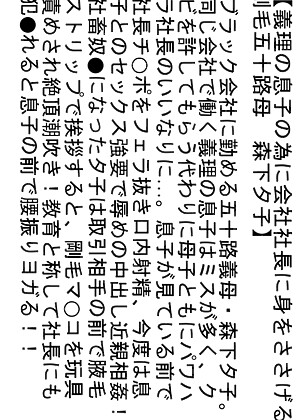 【義理の息子の為に会社社長に身をささげる
剛毛五十路母　森下夕子】
ブラック会社に勤める五十路義母・森下夕子。
同じ会社で働く義理の息子はミスが多く、ク
ビを許してもらう代わりに母子ともにパワハ
ラ社長のいいなりに…。息子が見ている前で
社長チ○ポをフェラ抜き口内射精、今度は息
子とのセックス強要で辱めの中出し近親相姦！
社畜奴●になった夕子は取引相手の前で腋毛
ストリップで挨拶すると、剛毛マ○コを玩具
責めされ絶頂潮吹き！教育と称して社長にも
犯●れると息子の前で腰振りヨガる！！